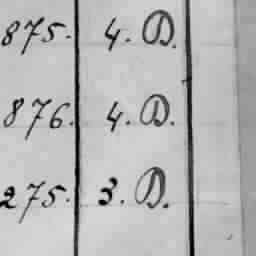 875. 4. D.
876. 4. D.
275. 3. D.